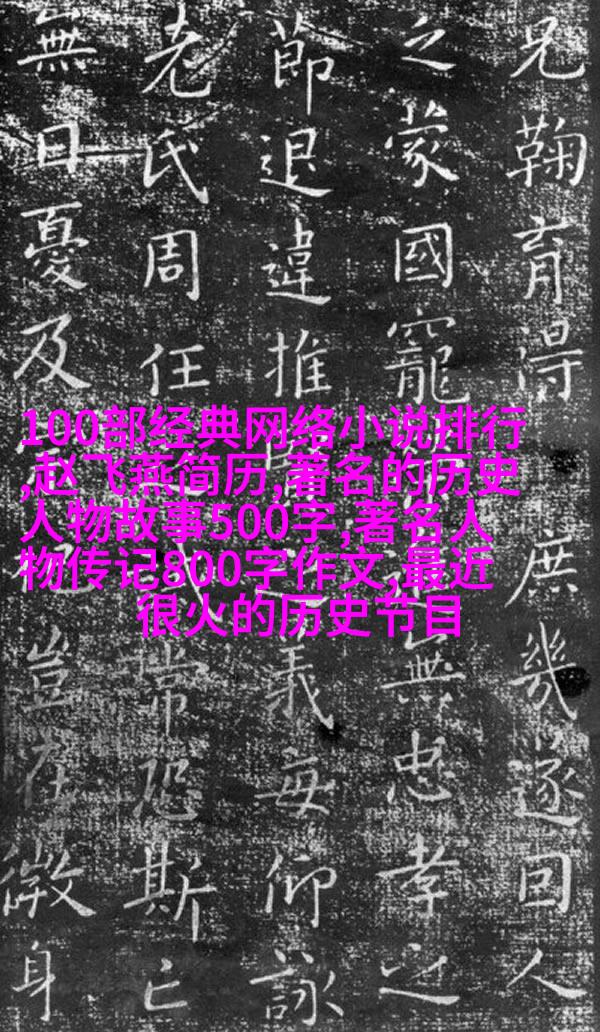 兄鞠育得庶幾遂回人
之蒙國寵無忠孝之
節退違推義每仰詠
老氏周任常恐斯亡
無日憂及豈在微身
100部经典网络小说排行
,赵飞燕简历,著名的历史
人物故事500字,著名人
物传记800字作文,最近
很火的历史节目